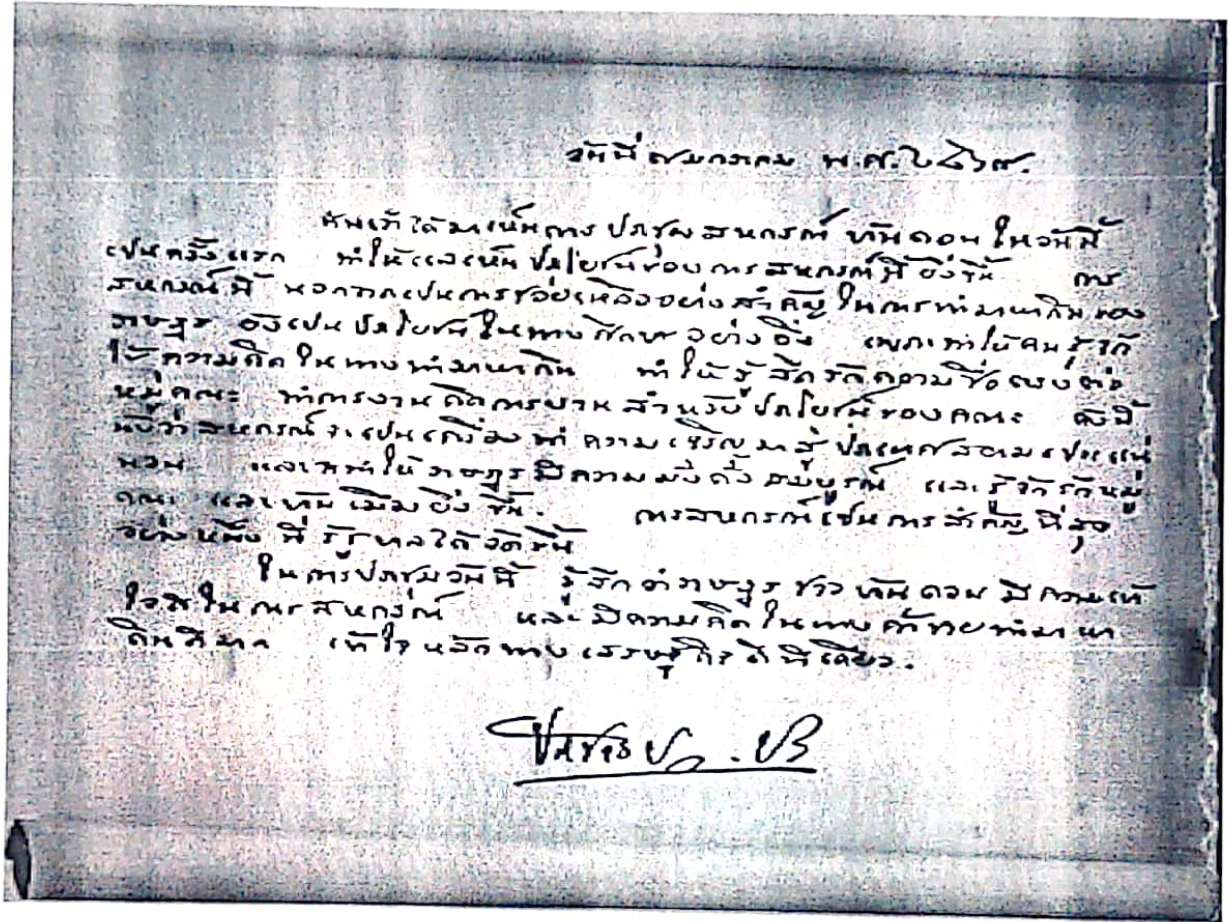 วันที่ ๗ มกราคม พ.ศ. ๒๔๖๙.
ฉันเข้าได้มาเห็นการประชุมสหกรณ์ ในวันนี้
เป็นครั้งแรก ทำให้แลเห็นประโยชน์ของการสหกรณ์นี้ยิ่งขึ้น การ
สหกรณ์นี้ นอกจากเป็นการช่วยเหลืออย่างสำคัญในการทำมาหากินของ
ราษฎร ยังเป็นประโยชน์ในทางศึกษาอย่างยิ่ง เพราะทำให้คนรู้จัก
ใช้ความคิดในทางทำมาหากิน ทำให้รู้สึกรักความซื่อตรงต่อ
หมู่คณะ ทำการงานคิดการงานสำหรับประโยชน์ของคณะ ดังนี้
นับว่าสหกรณ์จะเป็นเครื่องนำความเจริญมาสู่ประเทศสยามเป็นแน่
นอน และทำให้ราษฎรมีความมั่งคั่งสมบูรณ์ และรู้จักรักหมู่
คณะ และ ยิ่งขึ้น. การสหกรณ์เป็นการสำคัญที่สุด
อย่างหนึ่ง ที่รัฐบาลได้จัดขึ้น
ในการประชุมวันนี้ รู้สึกว่าราษฎรชาว มีความเข้า
ใจดีในการสหกรณ์ และมีความคิดในทางค้าขายทำมาหา
กินดีมาก เข้าใจหลักทางเศรษฐกิจดีทีเดียว.
ประชาธิปก. ปร